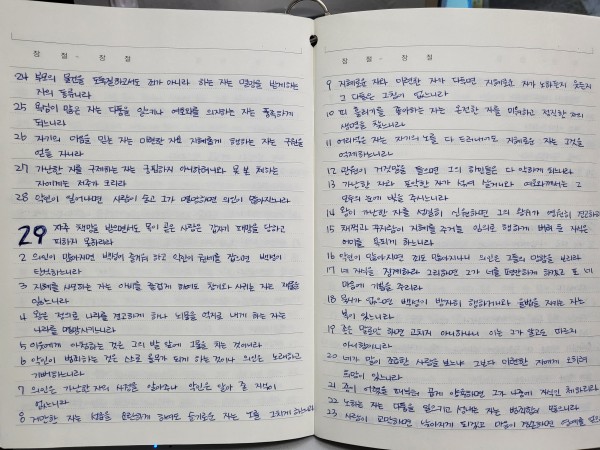 장 절 - 장 절
24 부모의 물건을 도둑질하고서도 죄가 아니라 하는 자는 멸망 받게하는
자의 동류니라
25 욕심이 많은 자는 다툼을 일으키나 여호와를 의지하는 자는 풍족하게
되느니라
26 자기의 마음을 믿는 자는 미련한 자요 지혜롭게 행하는 자는 구원을
얻을 자니라
27 가난한 자를 구제하는 자는 궁핍하지 아니하려니와 못 본 체하는
자에게는 저주가 크리라
28 악인이 일어나면 사람이 숨고 그가 멸망하면 의인이 많아지느니라
29 자주 책망을 받으면서도 목이 곧은 사람은 갑자기 패망을 당하고
피하지 못하리라
2 의인이 많아지면 백성이 즐거워 하고 악인이 권세를 잡으면 백성이
탄식하느니라
3 지혜를 사모하는 자는 아비를 즐겁게 하여도 창기와 사귀는 자는 재물을
잃느니라
4 왕은 정의로 나라를 견고하게 하나 뇌물을 억지로 내게 하는 자는
나라를 멸망시키느니라
5 이웃에게 아첨하는 것은 그의 발 앞에 그물을 치는 것이니라
6 악인이 범죄하는 것은 스스로 올무가 되게 하는 것이나 의인은 노래하고
기뻐하느니라
7 의인은 가난한 자의 사정을 알아주나 악인은 알아 줄 지식이
없느니라
8 거만한 자는 성읍을 요란하게 하여도 슬기로운 자는 노를 그치게 하느니라
장 절 - 장 절
9 지혜로운 자와 미련한 자가 다투면 지혜로운 자가 노하든지 웃든지
그 다툼은 그침이 없느니라
10 피 흘리기를 좋아하는 자는 온전한 자를 미워하고 정직한 자의
생명을 찾느니라
11 어리석은 자는 자기의 노를 다 드러내어도 지혜로운 자는 그것을
억제하느니라
12 관원이 거짓말을 들으면 그의 하인들은 다 악하게 되느니라
13 가난한 자와 포악한 자가 섞여 살거니와 여호와께서는 그
모두의 눈에 빛을 주시느니라
14 왕이 가난한 자를 성실히 신원하면 그의 왕위가 영원히 견고하
15 채찍과 꾸지람이 지혜를 주거늘 임의로 행하게 버려 둔 자식은
어미를 욕되게 하느니라
16 악인이 많아지면 죄도 많아지나니 의인은 그들의 망함을 보리라
17 네 자식을 징계하라 그리하면 그가 너를 평안하게 하겠고 또 네
마음에 기쁨을 주리라
18 묵시가 없으면 백성이 방자히 행하거니와 율법을 지키는 자는
복이 있느니라
19 종은 말로만 하면 고치지 아니하나니 이는 그가 알고도 따르지
아니함이니라
20 네가 말이 조급한 사람을 보느냐 그보다 미련한 자에게 오히려
희망이 있느니라
21 종이 어렸을 때부터 곱게 양육하면 그가 나중에 자식인 체하리라
22 노하는 자는 다툼을 일으키고 성내는 자는 범죄함이 많으니라
23 사람이 교만하면 낮아지게 되겠고 마음이 겸손하면 영예를